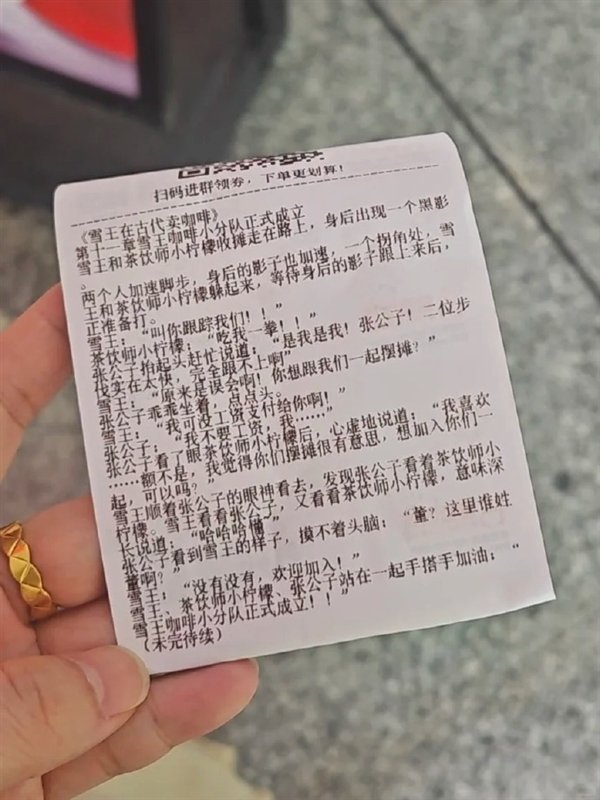 扫码进群领券，下单更划算！
《雪王在古代卖咖啡》
第十一章雪王咖啡小分队正式成立
雪王和茶饮师小柠檬收摊走在路上，身后出现一个黑影
。
两个人加速脚步，身后的影子也加速。一个拐角处，雪
王和茶饮师小柠檬躲起来，等待身后的影子跟上来后，
正准备打。
雪王：“叫你跟踪我们！！”
茶饮师小柠檬：“吃我一拳！！”
张公子抬起头赶忙说道：“是我是我！张公子！二位步
伐实在太快，完全跟不上啊”
雪王：“原来是误会啊！你想跟我们一起摆摊？”
张公子乖乖坐着，点点头。
雪王：“我可没工资支付给你啊！”
张公子：“我不要工资，我......”
张公子看了眼茶饮师小柠檬后，心虚地说道：“我喜欢
......额不是，我觉得你们摆摊很有意思，想加入你们一
起，可以吗？”
雪王顺着张公子的眼神看去，发现张公子看着茶饮师小
柠檬。雪王看看张公子，又看看茶饮师小柠檬，意味深
长说道：“哈哈哈懂”
张公子看到雪王的样子，摸不着头脑：“董？这里谁姓
董啊？”
雪王：“没有没有，欢迎加入！”
雪王、茶饮师小柠檬、张公子站在一起手搭手加油：“
雪王咖啡小分队正式成立！！”
（未完待续）